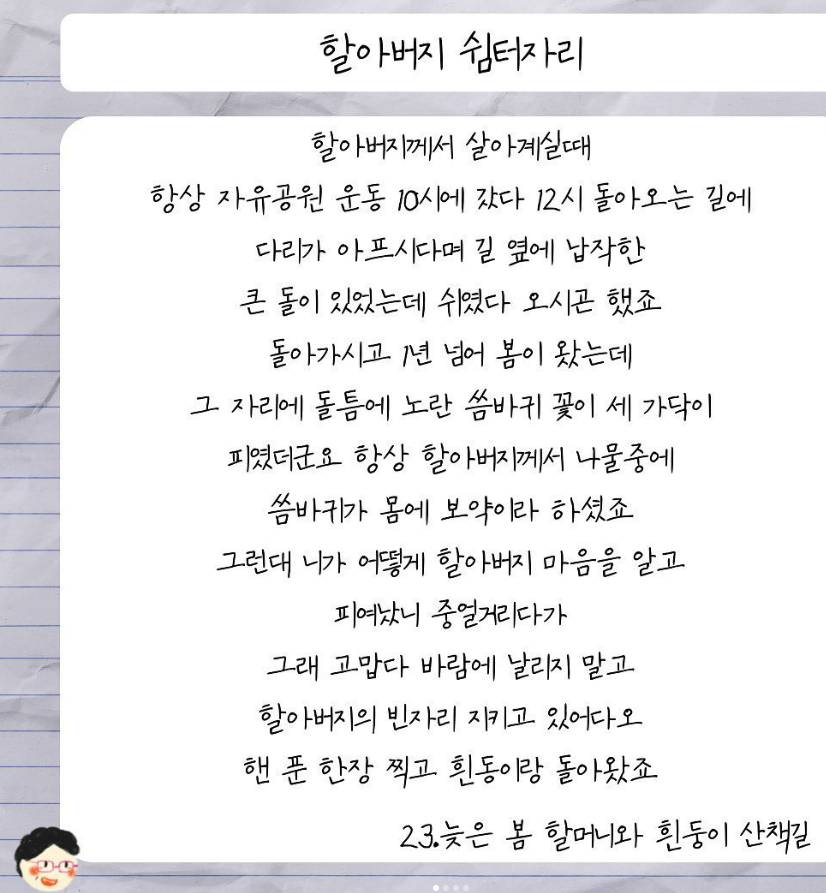 할아버지 쉼터자리
할아버지께서 살아계실때
항상 자유공원 운동 10시에 갔다 12시 돌아오는 길에
다리가 아프시다며 길 옆에 납작한
큰 돌이 있었는데 쉬였다 오시곤 했죠
돌아가시고 1년 넘어 봄이 왔는데
그 자리에 돌틈에 노란 씀바귀 꽃이 세 가닥이
피였더군요 항상 할아버지께서 나물중에
씀바귀가 몸에 보약이라 하셨죠
그런대 니가 어떻게 할아버지 마음을 알고
피여났니 중얼거리다가
그래 고맙다 바람에 날리지 말고
할아버지의 빈자리 지키고 있어다오
핸 푼 한장 찍고 흰동이랑 돌아왔죠
23.늦은 봄 할머니와 흰둥이 산책길